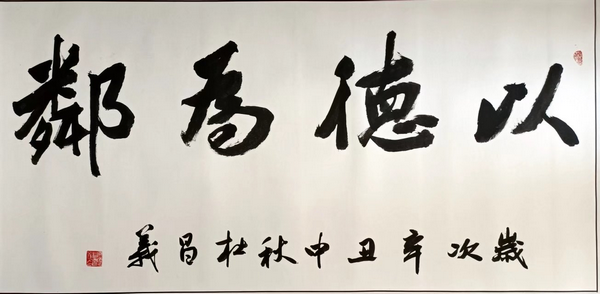 以德為鄰
歲次辛丑中秋杜昌義